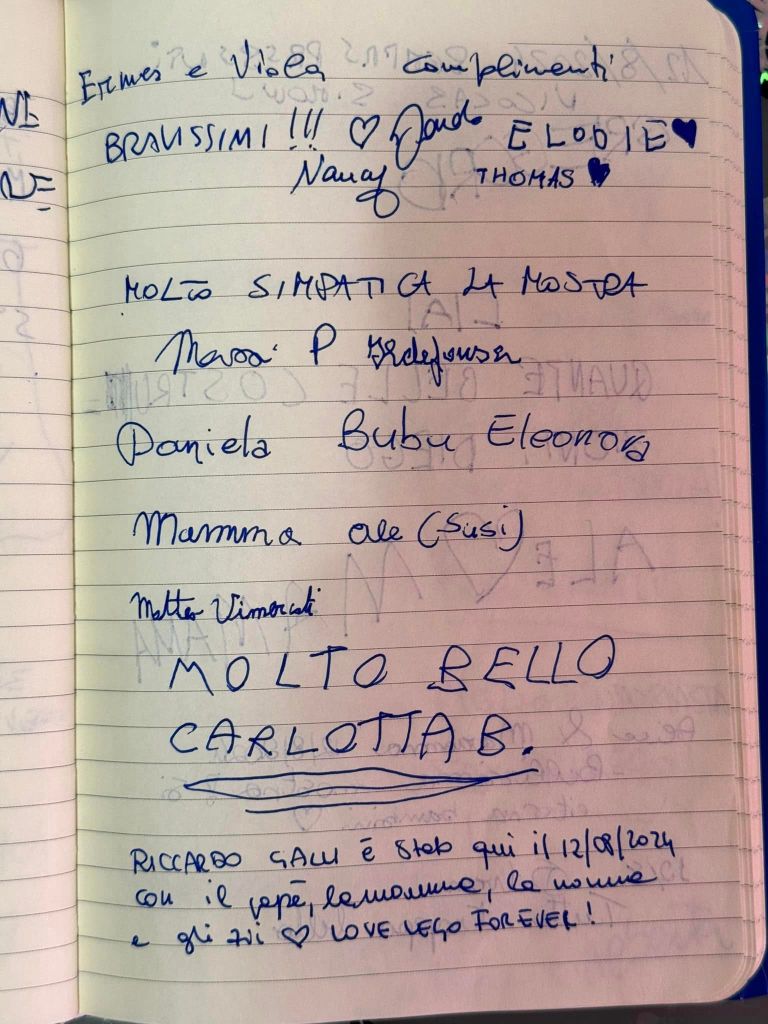 Ermes e Viola complimenti
BRAVISSIMI!!! ♡ ELODIE ♥
Nancy THOMAS ♥
MOLTO SIMPATICA LA MOSTRA
P
Daniela Bubu Eleonora
Mamma ale (Susi)
Matteo Vimercati
MOLTO BELLO
CARLOTTA B.
RICCARDO GALLI È stato qui il 12/08/2024
con il papà, la mamma, la nonna
e gli zii ♡ LOVE LEGO FOREVER!